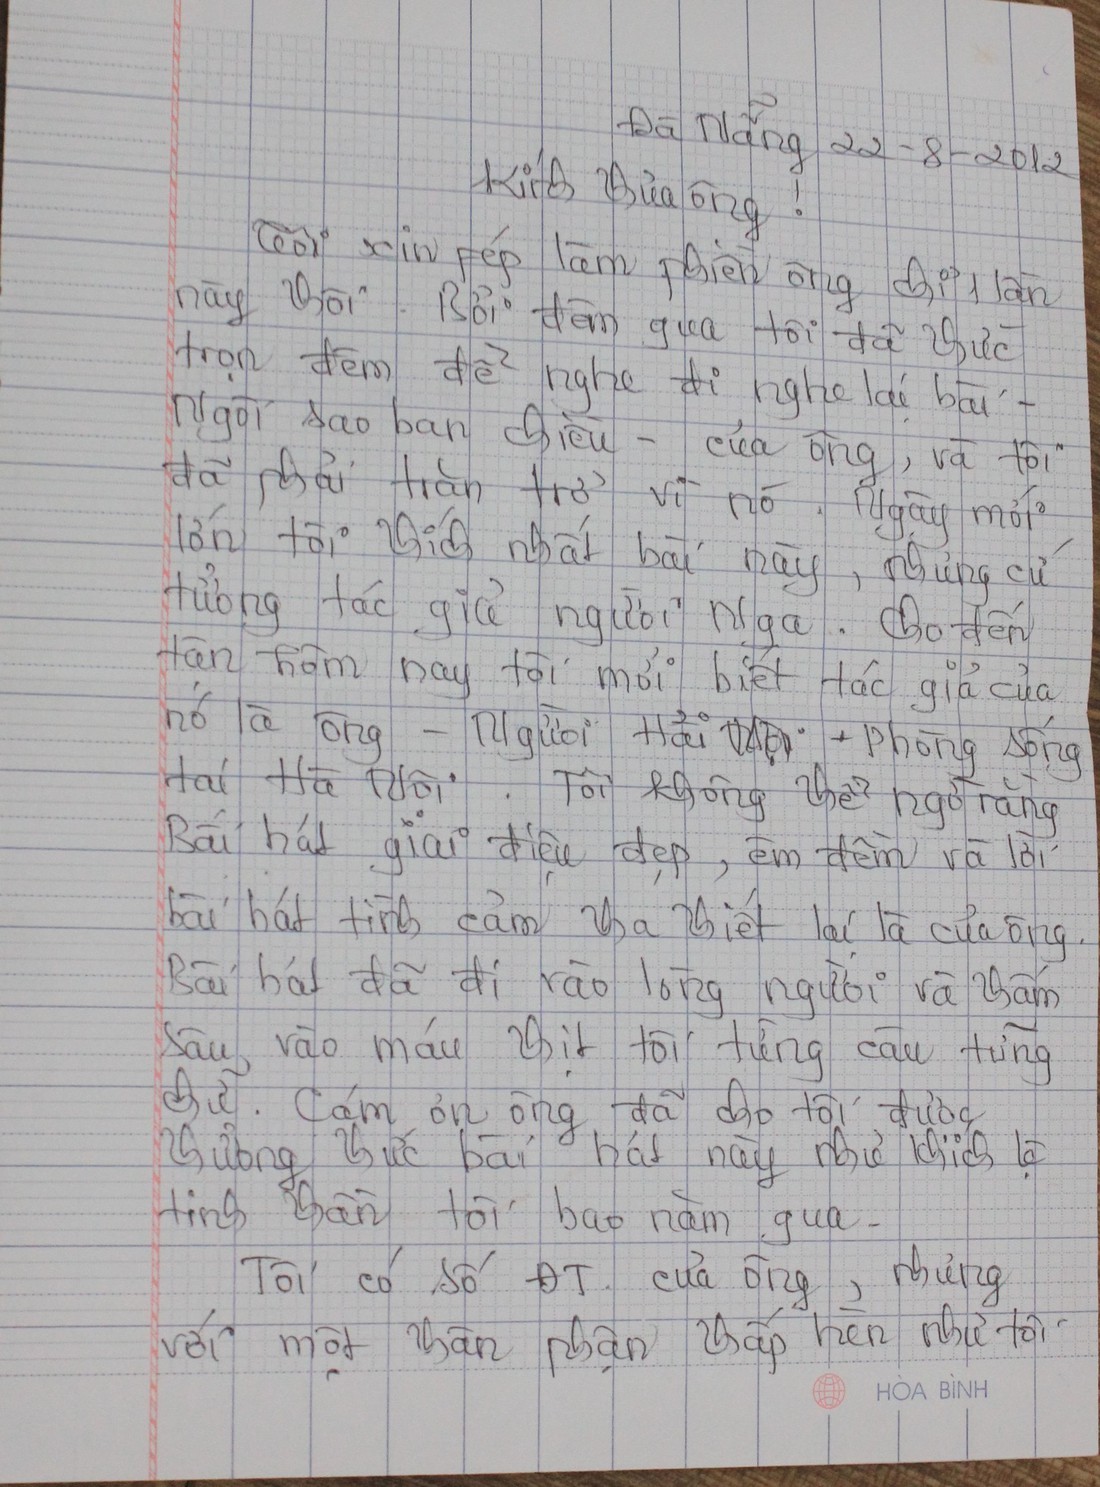 Đà Nẵng 22-8-2012
Kính thưa ông!
Tôi xin phép làm phiền ông chỉ 1 lần
này thôi. Bởi đêm qua tôi đã thức
trọn đêm để nghe đi nghe lại bài -
Ngôi sao ban chiều - của ông, và tôi
đã phải trằn trở vì nó. Ngày mới
lớn tôi thích nhất bài này, nhưng cứ
tưởng tác giả người Nga. Cho đến
tận hôm nay tôi mới biết tác giả của
nó là ông - Người Hải - Phòng sống
tại Hà Nội. Tôi không thể ngờ rằng
Bài hát giai điệu đẹp, êm đềm và lời
bài hát tình cảm tha thiết lại là của ông.
Bài hát đã đi vào lòng người và thấm
sâu vào máu thịt tôi từng câu từng
chữ. Cám ơn ông đã cho tôi được
thưởng thức bài hát này như khích lệ
tinh thần tôi bao năm qua -
Tôi có số ĐT. của ông, nhưng
với một thân phận thấp hèn như tôi
HÒA BÌNH